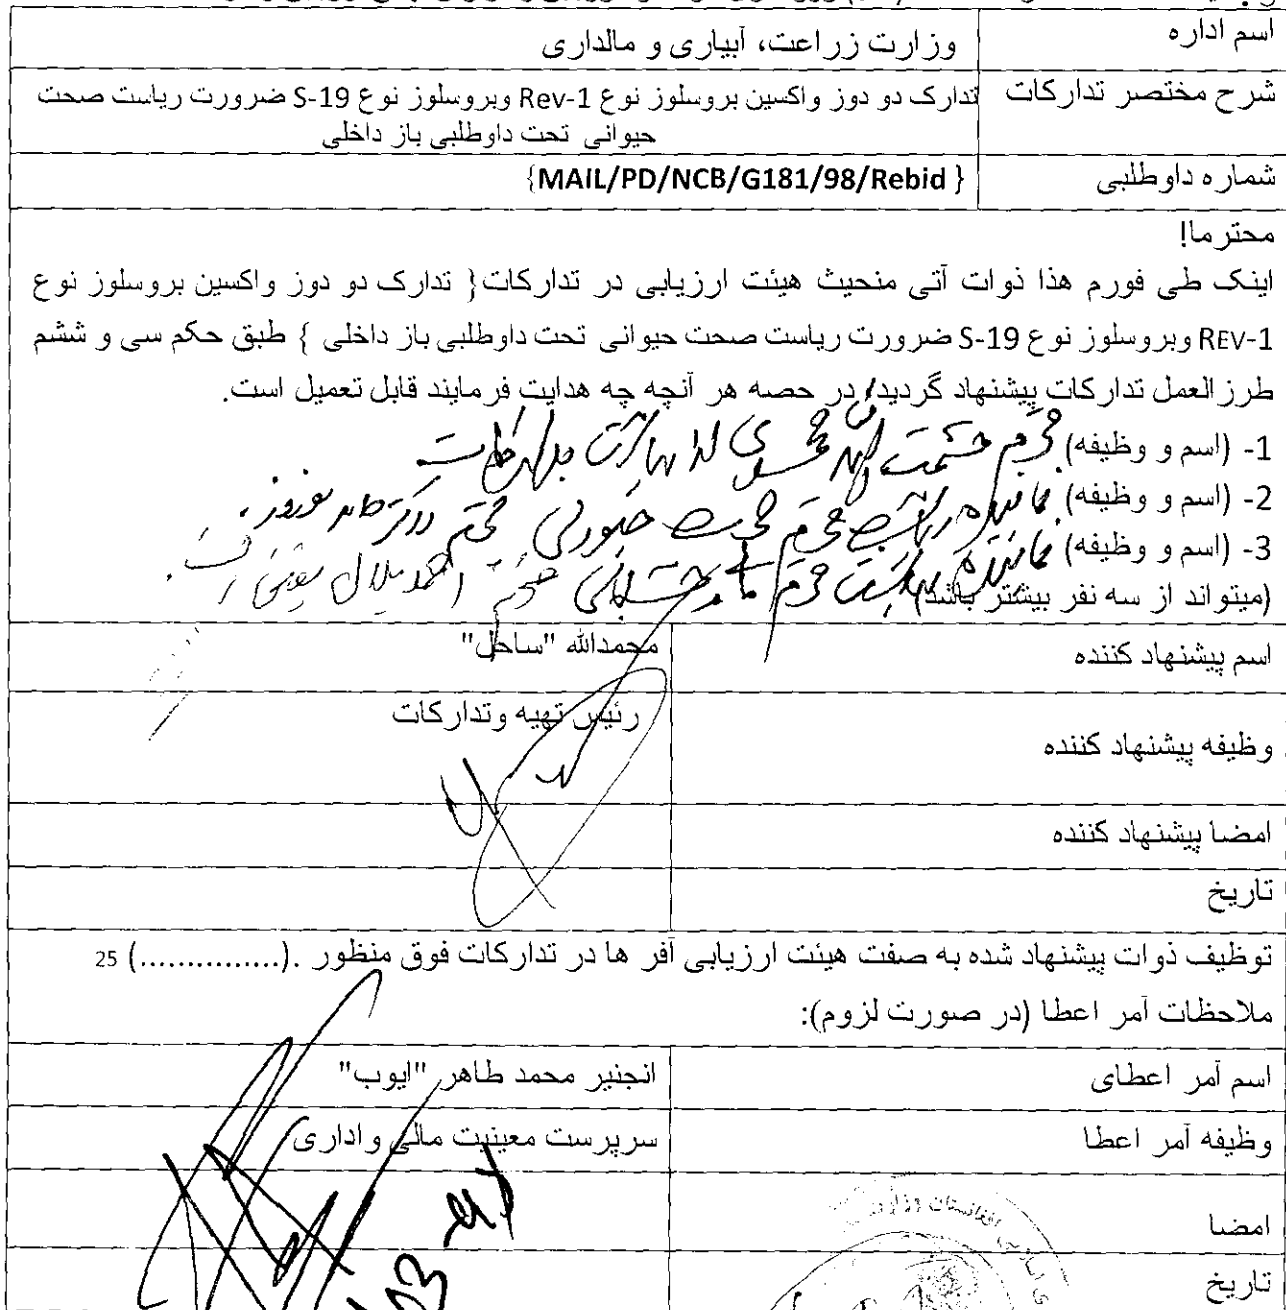 اسم اداره
وزارت زراعت، آبیاری و مالداری
شرح مختصر تدارکات
تدارک دو دوز واکسین بروسلوز نوع Rev-1 وبروسلوز نوع S-19 ضرورت ریاست صحت
حیوانی تحت داوطلبی باز داخلی
شماره داوطلبی
{MAIL/PD/NCB/G181/98/Rebid }
محترما!
اینک طی فورم هذا ذوات آتی منحیث هیئت ارزیابی در تدارکات{ تدارک دو دوز واکسین بروسلوز نوع
REV-1 وبروسلوز نوع S-19 ضرورت ریاست صحت حیوانی تحت داوطلبی باز داخلی } طبق حکم سی و ششم
طرزالعمل تدارکات پیشنهاد گردید در حصه هر آنچه چه هدایت فرمایند قابل تعمیل است.
1- (اسم و وظیفه) محترم حشمت الله
2- (اسم و وظیفه) نماینده محترم داکتر حامد نوروز
3- (اسم و وظیفه) نماینده محترم احمد بلال
(میتواند از سه نفر بیشتر باشد)
اسم پیشنهاد کننده
محمدالله "ساحل"
وظیفه پیشنهاد کننده
رئیس تهیه وتدارکات
امضا پیشنهاد کننده
تاریخ
توظیف ذوات پیشنهاد شده به صفت هیئت ارزیابی آفر ها در تدارکات فوق منظور .(...............) 25
ملاحظات آمر اعطا (در صورت لزوم):
اسم آمر اعطای
انجنیر محمد طاهر "ایوب"
وظیفه آمر اعطا
سرپرست معینیت مالی واداری
امضا
تاریخ